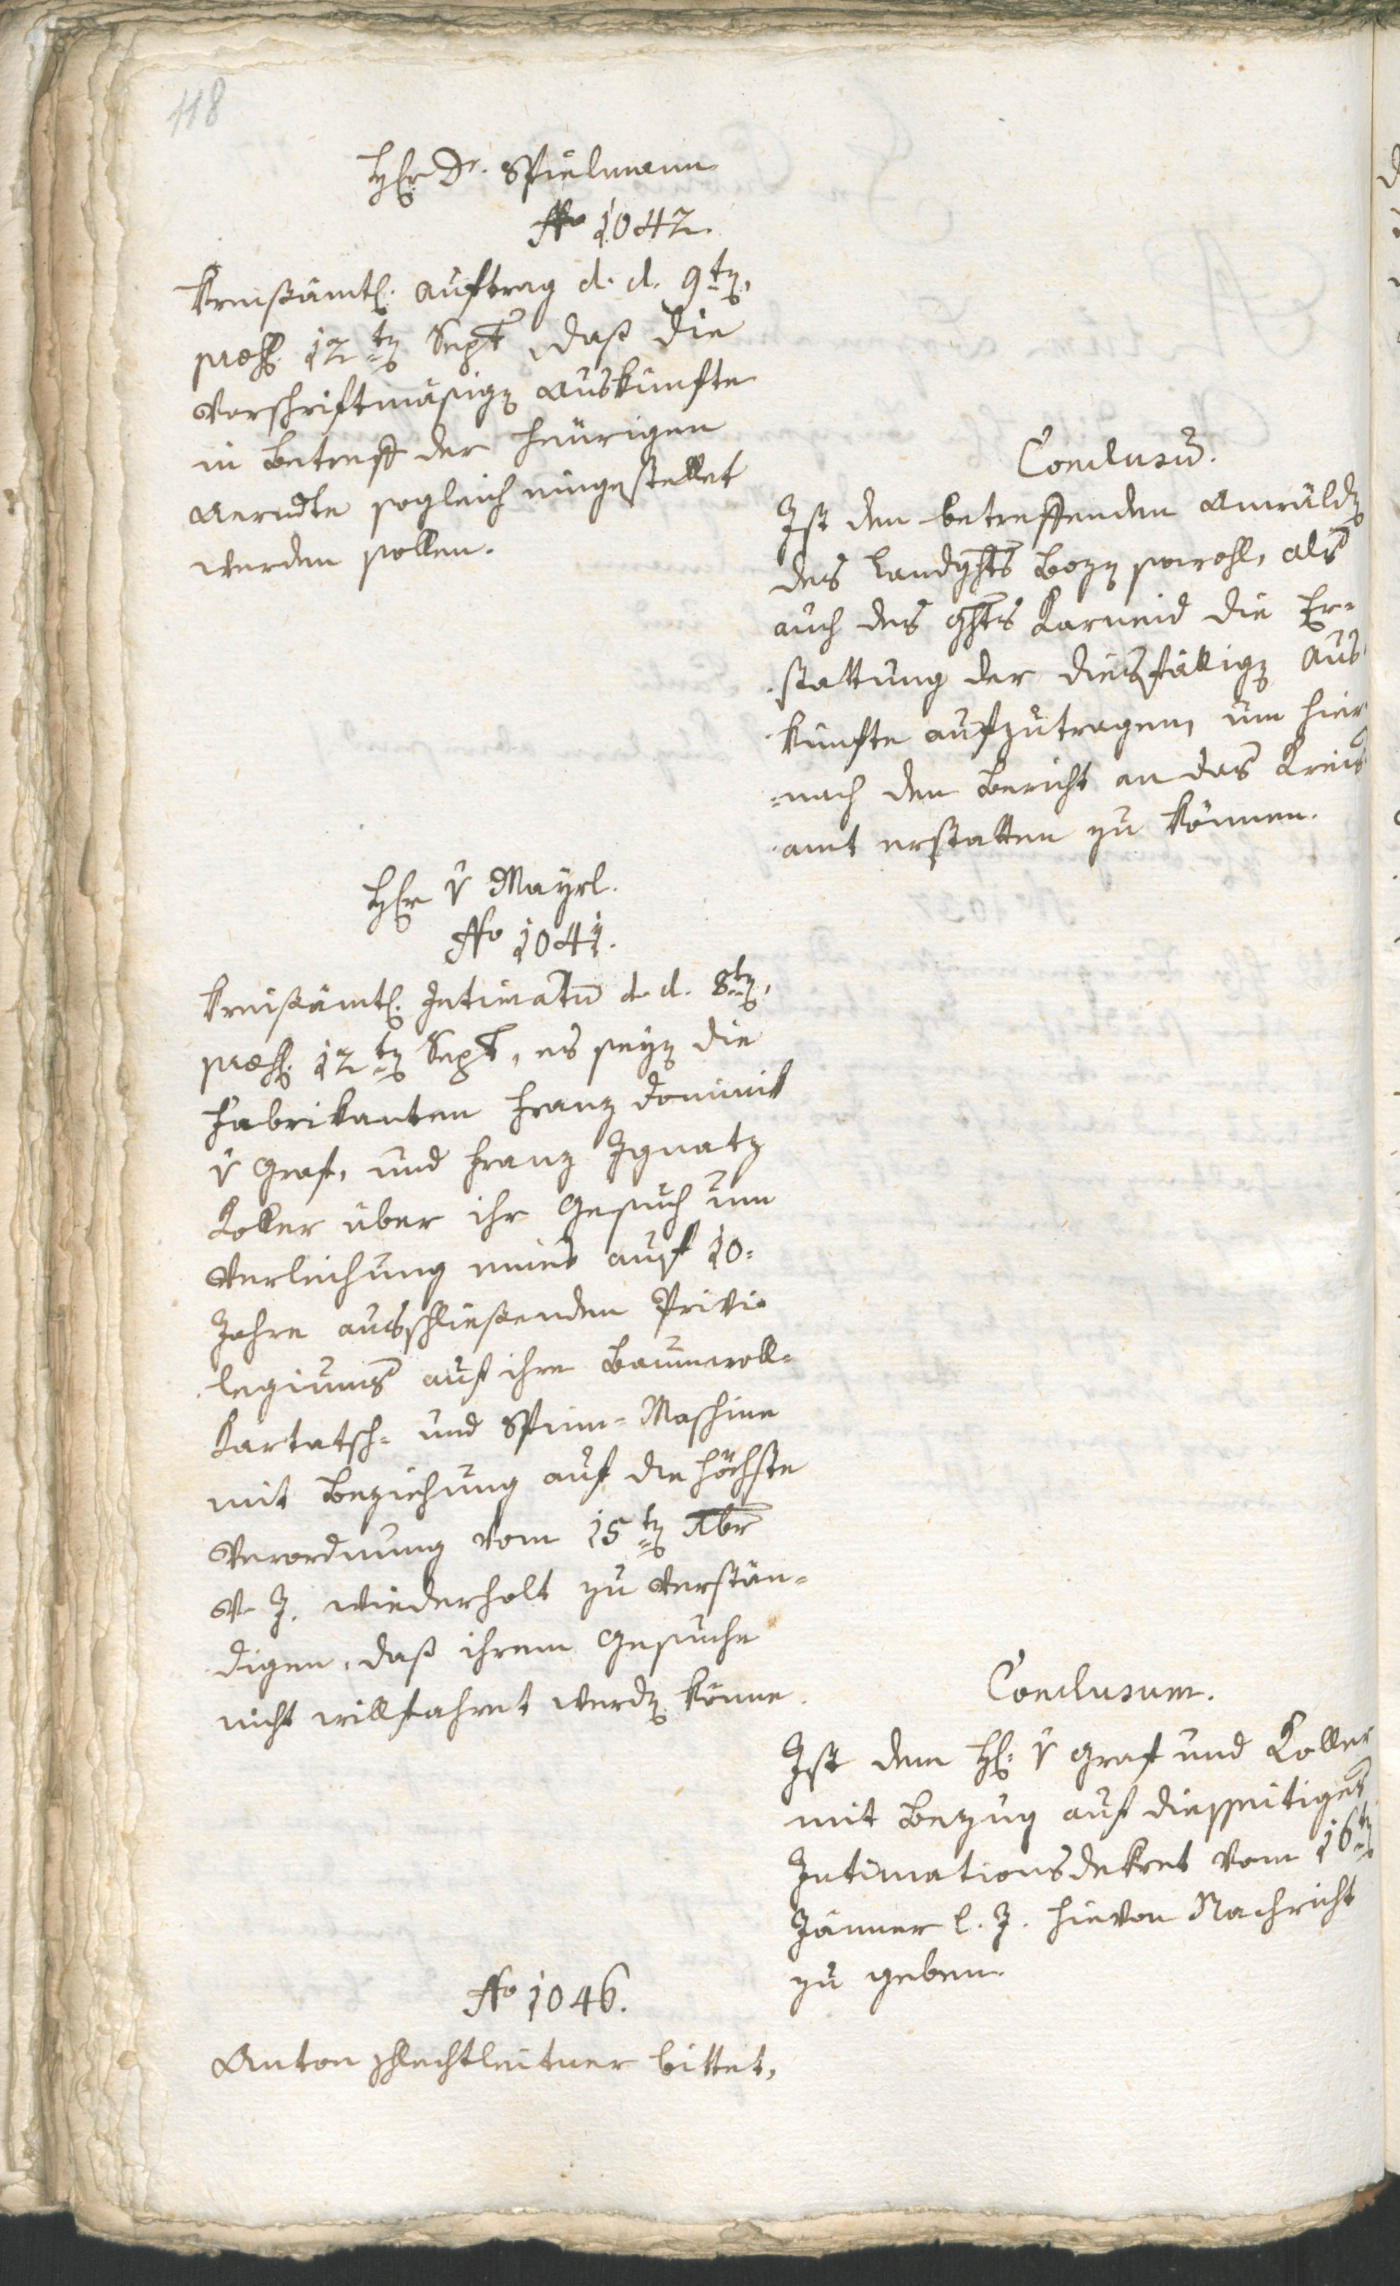 118
Hr Dr. Spielmann
No 1042.
Kreisämtl. Auftrag d. d. 9ten,
praes. 12ten Sept, daß die
vorschriftmäsigen Auskünfte
in Betreff der heürigen
Aerndte sogleich eingestellet
werden sollen.
Conclusum.
Ist den betreffenden Anwälden
des Landghts Bozen sowohl, als
auch des ghts Karneid die Er-
stattung der diesfälligen Aus
künfte aufzutragen, um hier
nach den Bericht an das Kreis
amt erstatten zu können.
Hr v Mayrl.
No 1041.
Kreisämtl. Intimatum d. d. 8ten,
praes. 12ten Sept, es seyen die
Fabrikanten Franz Dominik
v Graf, und Franz Ignatz
Koller über ihr Gesuch um
Verleihung eines auf 10=
Jahre ausschließenden Privi=
legiums auf ihre Baumwoll=
Kartatsch= und Spinn=Maschine
mit Beziehung auf die höchste
Verordnung vom 15ten Xbr
v. J. wiederholt zu verstän=
digen, daß ihrem Gesuche
nicht willfahret werden könne.
Conclusum.
Ist dem H: v Graf und Koller
mit Bezug auf diesseitiges
Intimationsdekret vom 16ten
Jänner l. J. hievon Nachricht
zu geben.
No 1046.
Anton Schlechtleitner bittet,